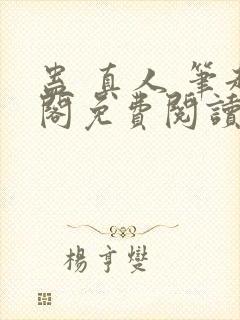 蛊真人 筆
閣免費閱讀
楊亨燮